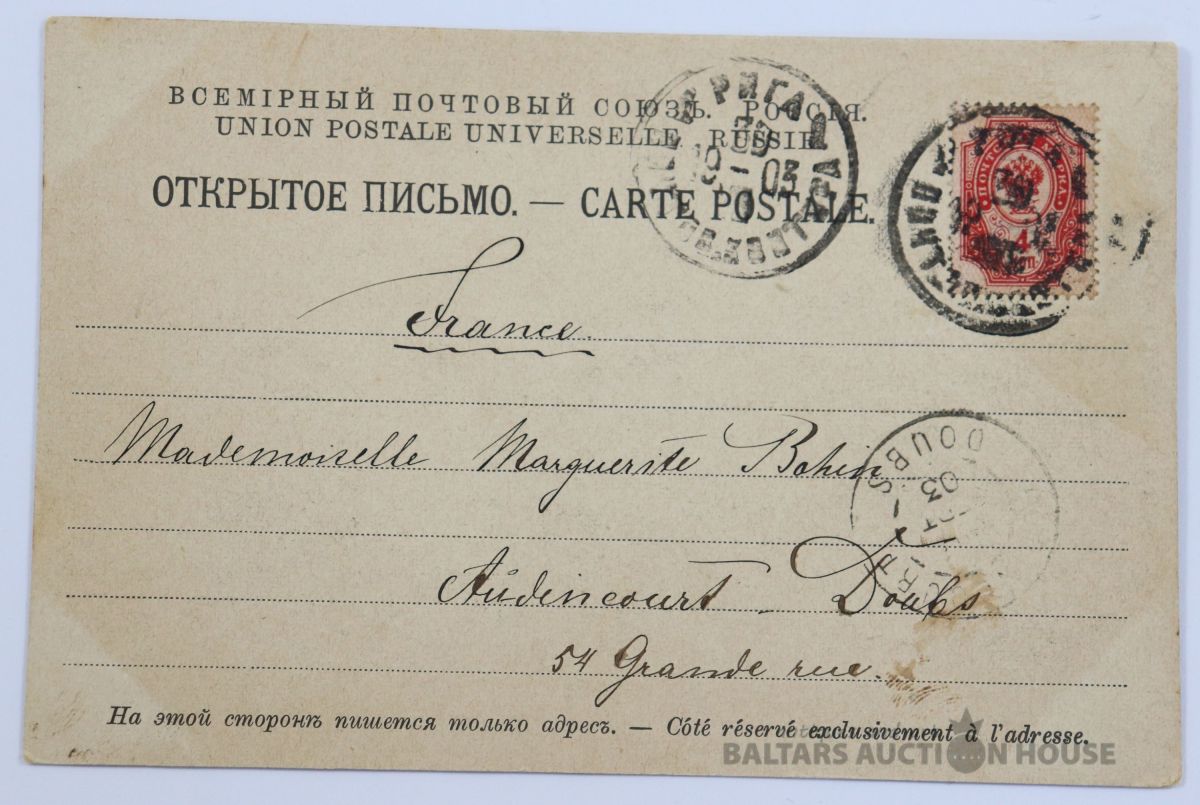 ВСЕМІРНЫЙ ПОЧТОВЫЙ СОЮЗЪ. РОССІЯ.
UNION POSTALE UNIVERSELLE. RUSSIE.
ОТКРЫТОЕ ПИСЬМО. — CARTE POSTALE.
РИГА
03
ПОЧТОВАЯ МАРКА
4
France.
Mademoiselle Marguerite Bohin
DOUBS
03
Audincourt - Doubs
54 Grande rue.
На этой сторонѣ пишется только адресъ. — Côté réservé exclusivement à l'adresse.
BALTARS AUCTION HOUSE